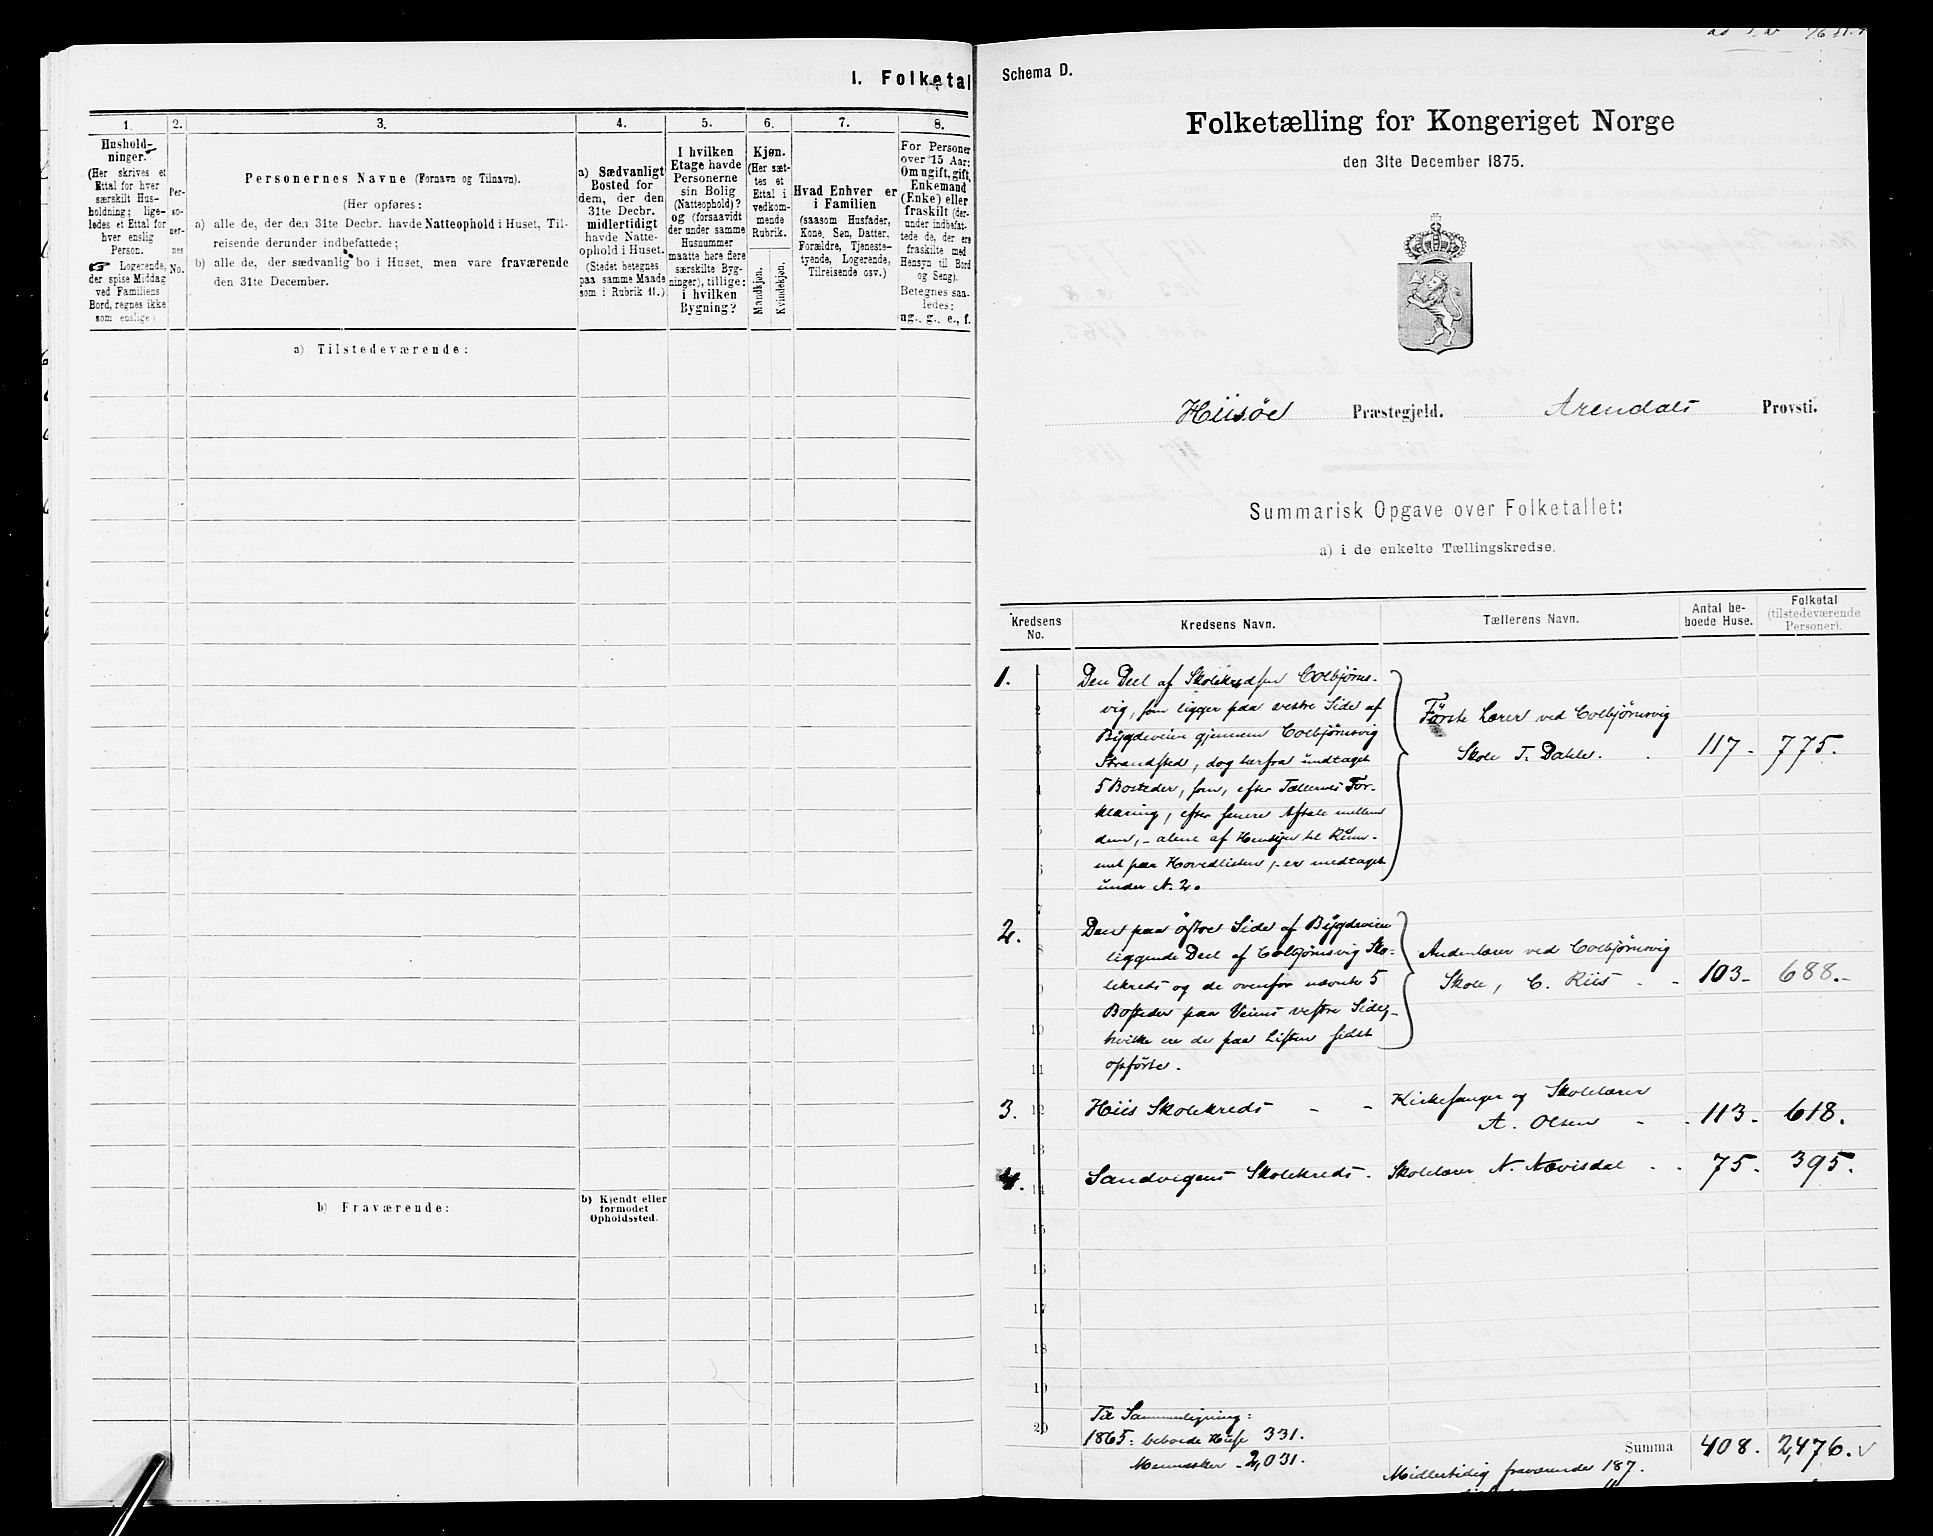 I. Folketal
1.
2.
3.
4.
5.
6.
7.
8.
Hushold-
ninger.
(Her skrives et
Ettal for hver
særskilt Hus-
holdning; lige-
ledes et Ettal for
hver enslig
Person.
☞ Logerende,
der spise Middag
ved Familiens
Bord, regnes ikke
som enslige.)
Per-
so-
ner-
nes
No.
Personernes Navne (Fornavn og Tilnavn).
(Her opføres:
a) alle de, der den 31te Decbr. havde Natteophold i Huset, Til-
reisende derunder indbefattede;
b) alle de, der sædvanlig bo i Huset, men vare fraværende
den 31te December.
a) Sædvanligt
Bosted for
dem, der den
31te Decbr.
midlertidigt
havde Natte-
ophold i Huset.
(Stedet betegnes
paa samme Maade
som i Rubrik 11.)
I hvilken
Etage havde
Personerne
sin Bolig
(Natteophold)?
og (forsaavidt
der under samme
Husnummer
maatte høre flere
særskilte Byg-
ninger), tillige:
i hvilken
Bygning?
Kjøn.
(Her sæt-
tes et
Ettal i
vedkom-
mende
Rubrik.
Mandkjøn.
Kvindekjøn.
Hvad Enhver er
i Familien
(saasom Husfader,
Kone, Søn, Datter,
Forældre, Tjeneste-
tyende, Logerende,
Tilreisende osv.)
For Personer
over 15 Aar:
Om ugift, gift,
Enkemand
(Enke) eller
fraskilt (der-
under indbefat-
tede de, der ere
fraskilte med
Hensyn til Bord
og Seng).
Betegnes saa-
ledes:
ug., g., e., f.
a) Tilstedeværende:
b) Fraværende:
b) Kjendt eller
formodet
Opholdssted.
Schema D.
Folketælling for Kongeriget Norge
den 31te December 1875.
Hiisøe Præstegjeld. Arendals Provsti.
Summarisk Opgave over Folketallet:
a) i de enkelte Tællingskredse.
Kredsens
No.
Kredsens Navn.
Tællerens Navn.
Antal be-
boede Huse.
Folketal
(tilstedeværende
Personer).
1.
Den Deel af Skolekredsen Colbjørns-
vig, som ligger paa vestre Side af
Bygdeveien gjennem Colbjørnsvig
Strandsted, dog herfra undtaget
5 Bosteder, som, efter Tællernes For-
klaring, efter senere Aftale mellem
dem, - alene af Hensyn til Rum-
met paa Hovedlisten, - er medtaget
under N. 2.
Første Lærer ved Colbjørnsvig
Skole T. Dahle.
117. 775.
2.
Den paa østre Side af Bygdeveien
liggende Deel af Colbjørnsvig Sko-
lekreds og de ovenfor nævnte 5
Bosteder paa Veiens vestre Side, -
hvilke ere de paa Listen sidst
opførte.
Andenlærer ved Colbjørnsvig
Skole, C. Riis
103 - 688. -
3.
Hiis Skolekreds - -
Kirkesanger og Skolelærer
A. Olsen
113. 618.
4.
Sandvigens Skolekreds.
Skolelærer N. Nævisdal
75. 395.
1
2
3
4
5
6
7
8
9
10
11
12
13
14
15
16
17
18
19
20
Til Sammenligning:
1865: beboede Huse 331.
Mennesker - 2,031.
Summa 408. 2,476. ✓
Midlertidig fraværende 187.